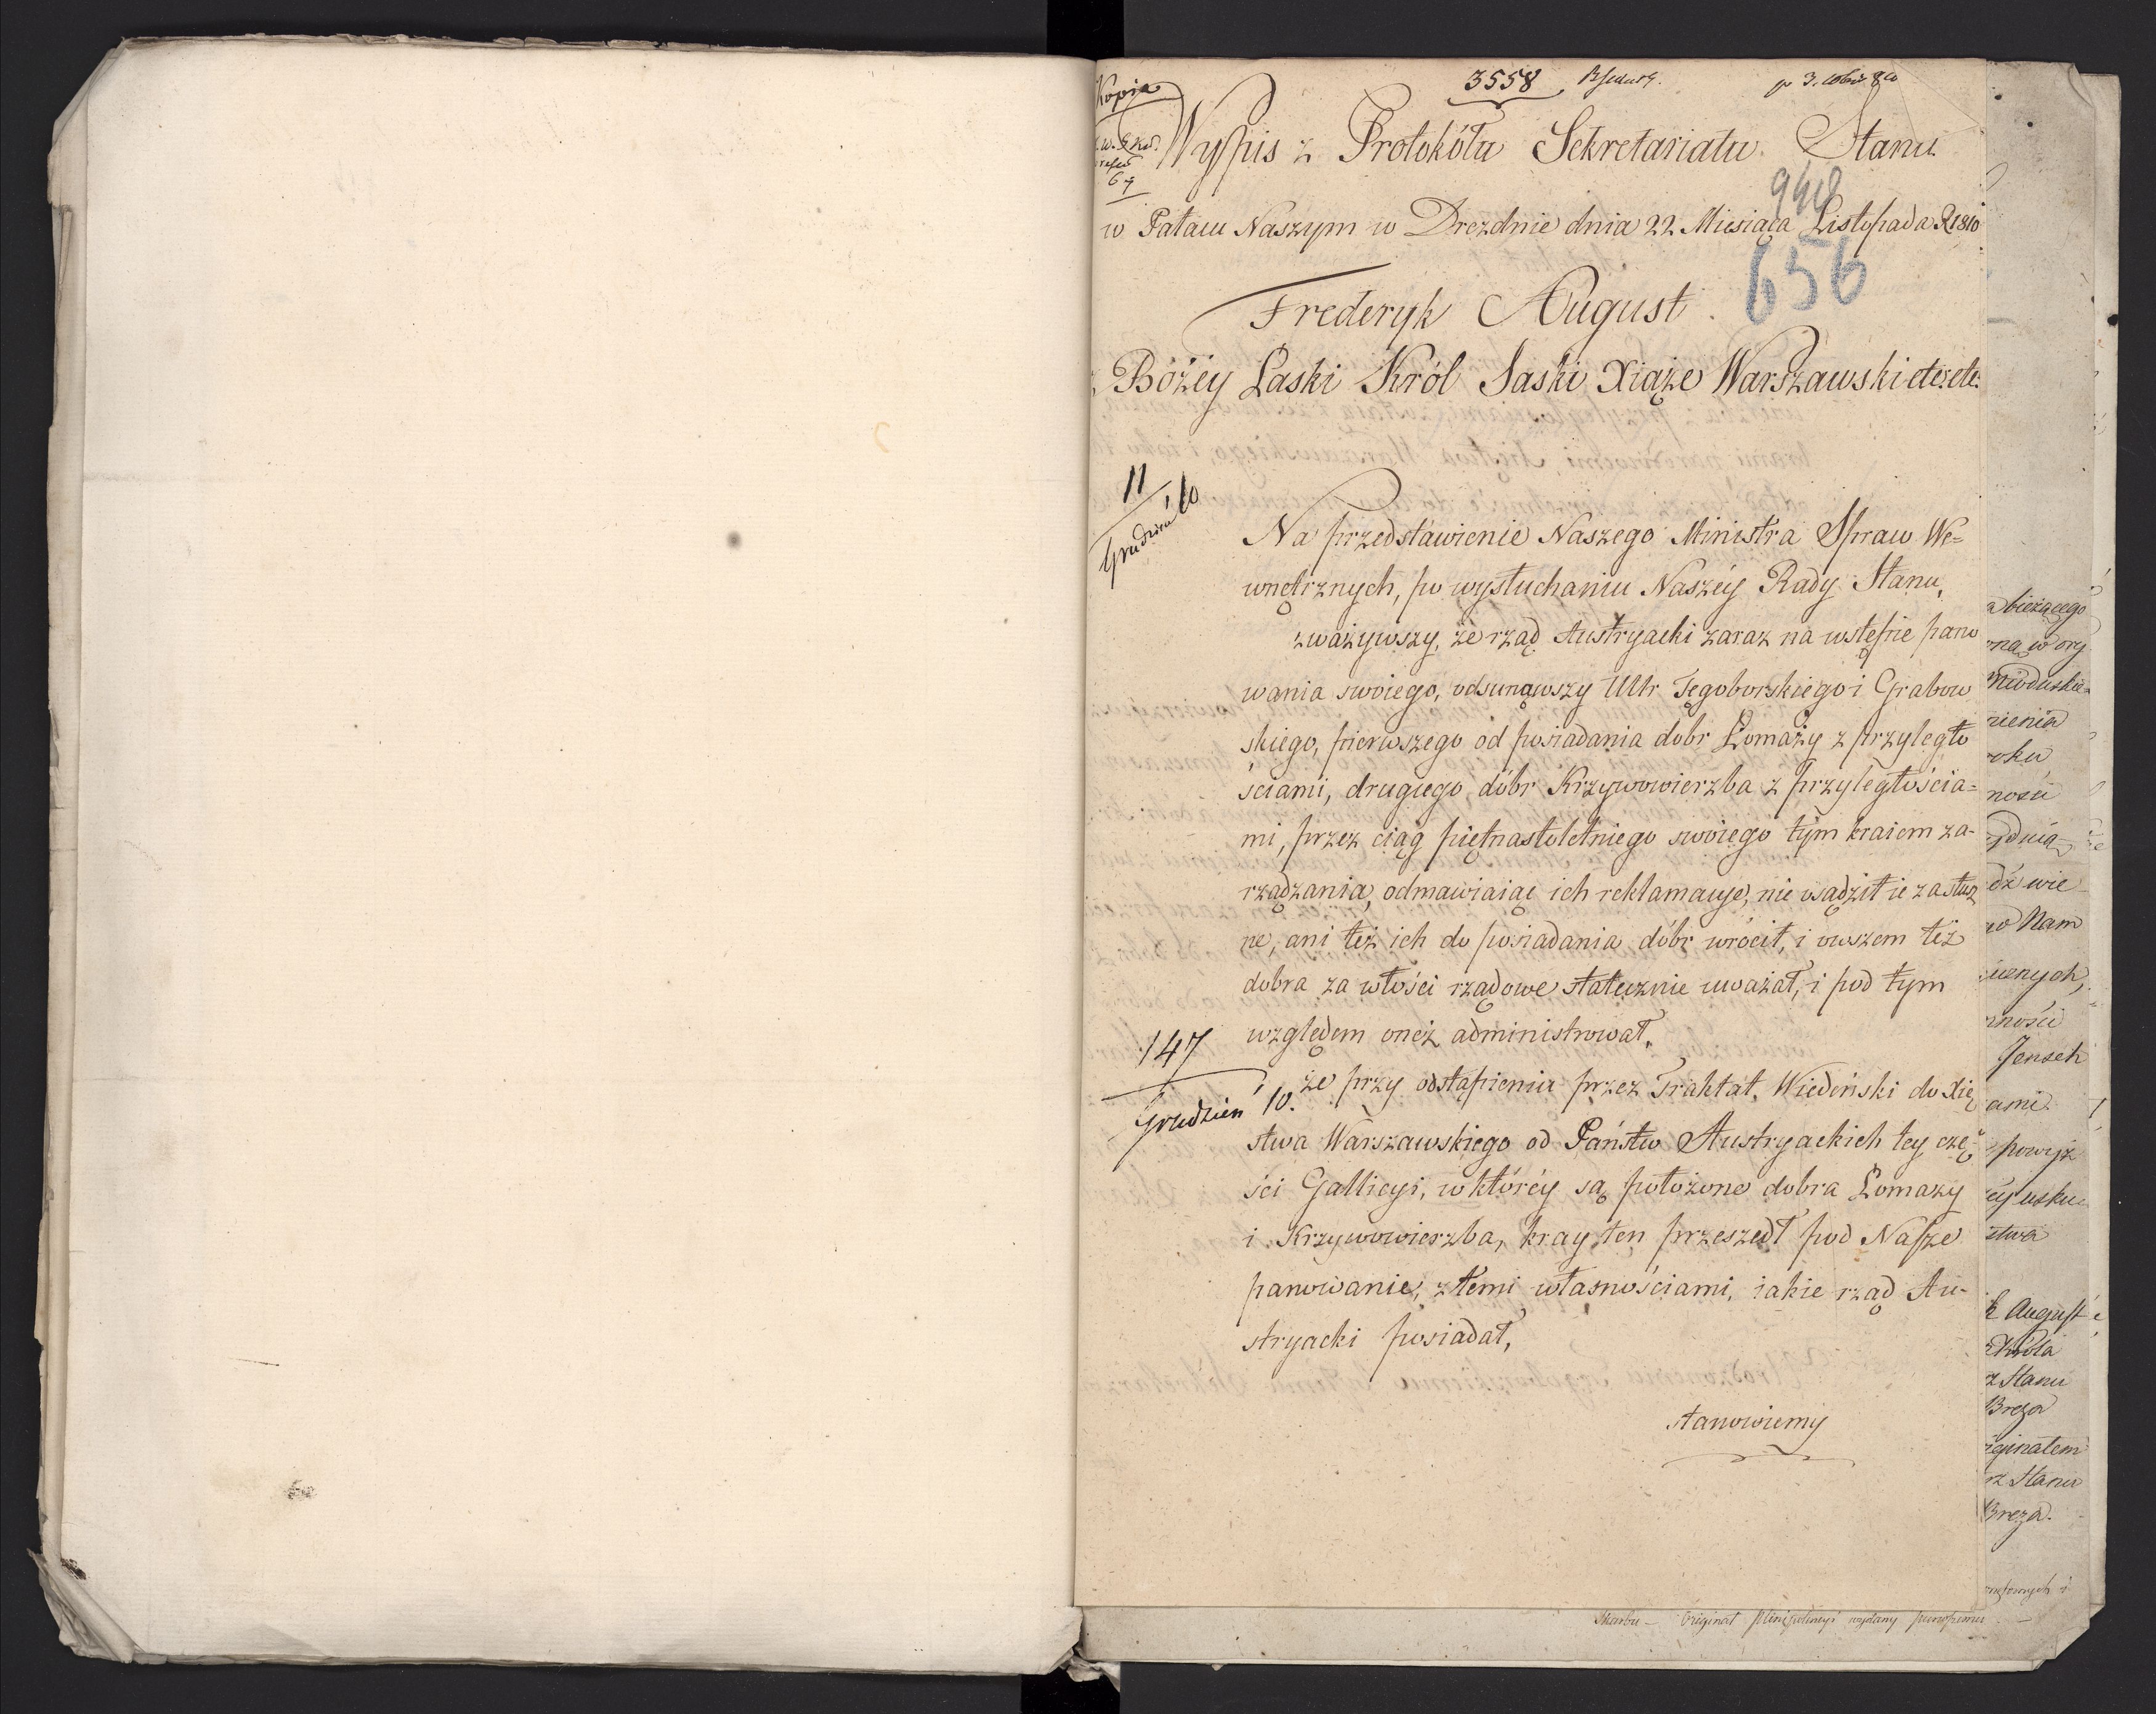 Kopia
3558
67
Wypis z Protokółu Sekretariatu Stanu
948
w Pałacu Naszym w Dreznie dnia 22. Miesiąca Listopada R 1810
656
Frederyk August
z Bożey Łaski Król Saski Xiąże Warszawski etc: etc:
11
Grudzień 10
Na przedstawienie Naszego Ministra Spraw We=
wnętrznych, po wysłuchaniu Naszéy Rady Stanu,
zważywszy, że rząd Austryacki zaraz na wstępie pano
wania swoiego, odsunąwszy UUr Tęgoborskiego i Grabow
skiego, pierwszego od posiadania dobr Łomazy z przyległo
ściami, drugiego dóbr Krzywowierzba z przyległościa=
mi, przez ciąg piętnastoletniego swoiego tym kraiem za-
rządzania, odmawiaiąc ich reklamacye, nie osądził ie za słusz
ne, ani też ich do posiadania dóbr wrócił, i owszem też
dobra za włości rządowe statecznie uważał, i pod tym
względem oneż administrował,
147
Grudzień 10.
że przy odstąpieniu przez Traktat Wiedeński do Xię
stwa Warszawskiego od Państw Austryackich tey czę-
ści Gallicyi, w któréy są położone dobra Łomazy
i Krzywowierzba, kray ten przeszedł pod Nasze
panowanie, z temi własnościami, iakie rząd Au-
stryacki posiadał,
stanowiemy
a bieżącego
oku
ności
dź wie
wo Nam
Jenseh
ami
powyż
stwa
August
Króla
z Stanu
Breza
yginałem
rz Stanu
Breza.
Skarbu - Originał